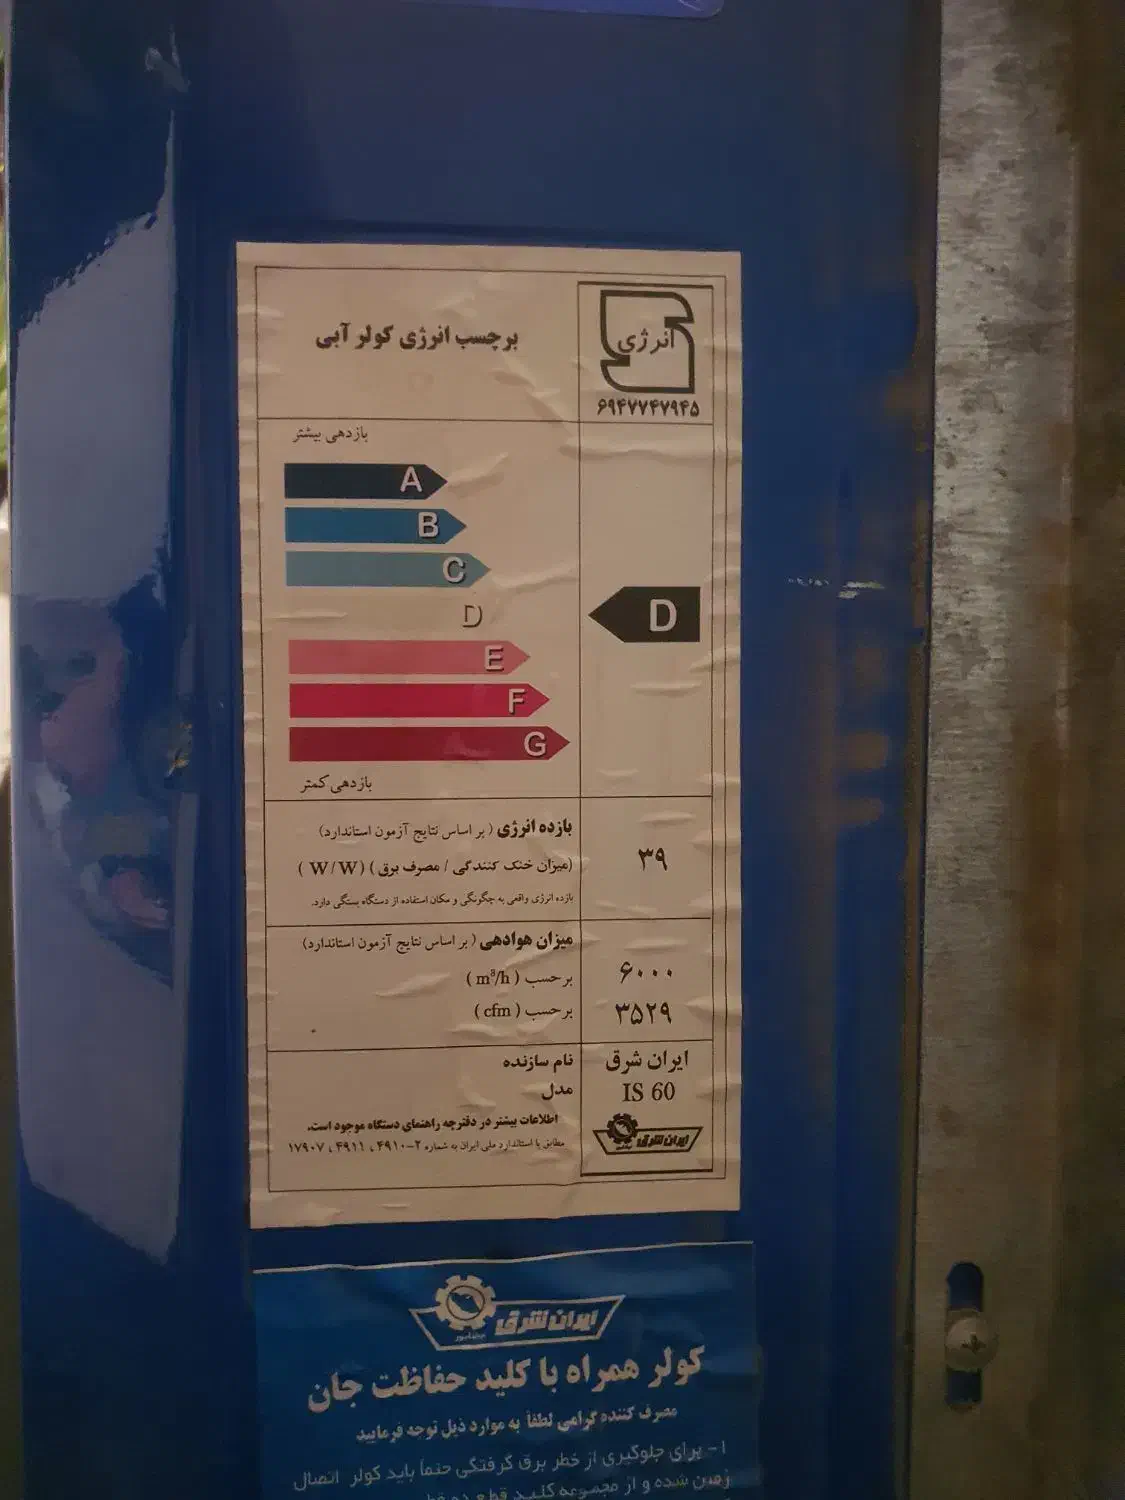 برچسب انرژی کولر آبی
انرژی
۶۹۴۷۷۴۷۹۴۵
بازدهی بیشتر
A
B
C
D
E
F
G
D
بازدهی کمتر
بازده انرژی (بر اساس نتایج آزمون استاندارد)
(میزان خنک کنندگی / مصرف برق) (W/W)
بازده انرژی واقعی به چگونگی و مکان استفاده از دستگاه بستگی دارد.
۳۹
میزان هوادهی (بر اساس نتایج آزمون استاندارد)
برحسب (m³/h)
۶۰۰۰
برحسب (cfm)
۳۵۲۹
نام سازنده
ایران شرق
مدل
IS 60
اطلاعات بیشتر در دفترچه راهنمای دستگاه موجود است.
مطابق با استاندارد ملی ایران به شماره ۲-۴۹۱۰ ، ۴۹۱۱ ، ۱۷۹۰۷
ایران شرق
ایران شرق
نیشابور
کولر همراه با کلید حفاظت جان
مصرف کننده گرامی لطفاً به موارد ذیل توجه فرمایید
۱- برای جلوگیری از خطر برق گرفتگی حتماً باید کولر اتصال
زمین شده و از مجموعه کلید قطع